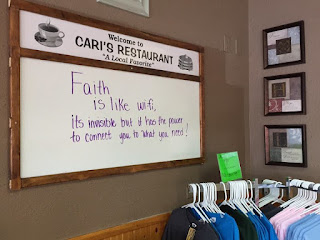 Welcome to
CARI'S RESTAURANT
"A Local Favorite"
Faith
is like wifi,
it's invisible but it has the power
to connect you to what you need!